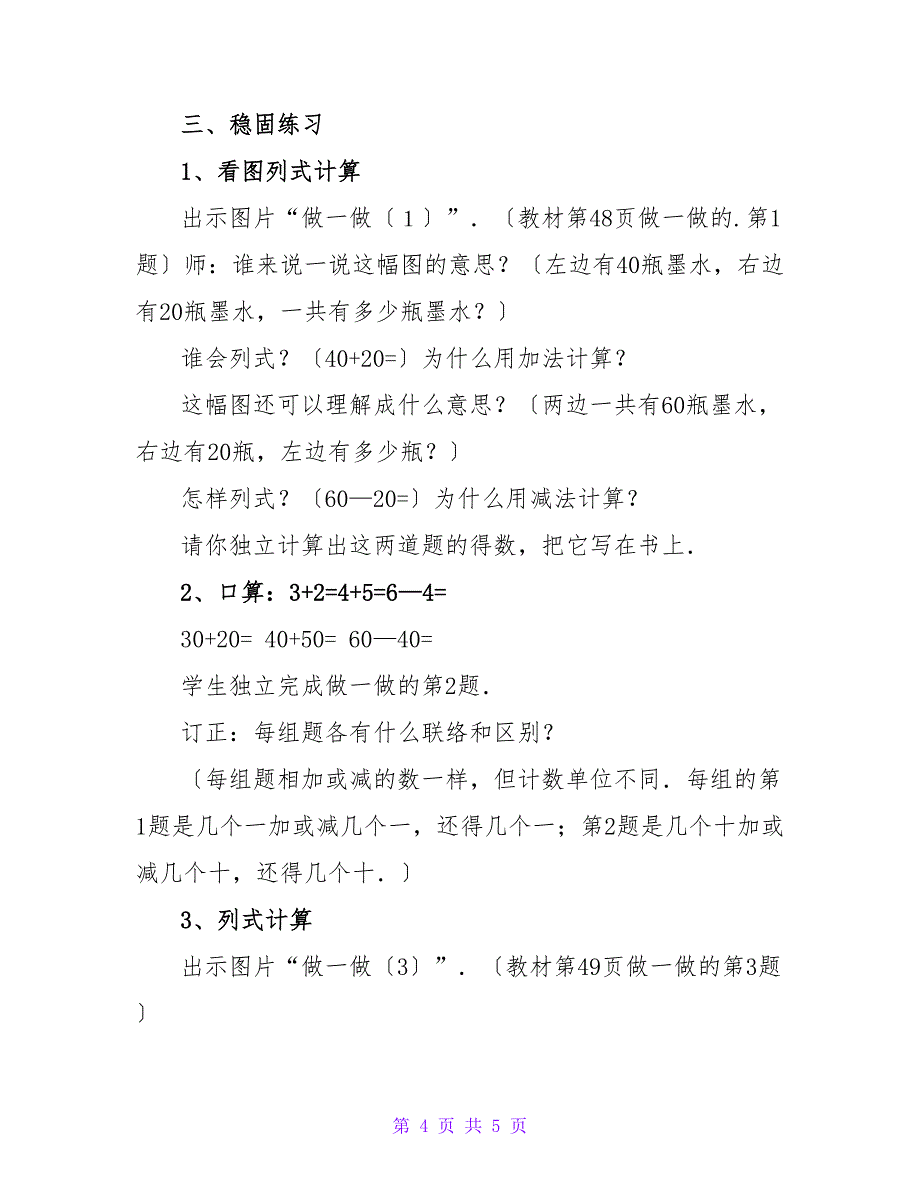 三、稳固练习
1、看图列式计算
出示图片“做一做〔１〕”．〔教材第48页做一做的.第1
题〕师：谁来说一说这幅图的意思？〔左边有40瓶墨水，右边
有20瓶墨水，一共有多少瓶墨水？〕
谁会列式？〔40+20=〕为什么用加法计算？
这幅图还可以理解成什么意思？〔两边一共有60瓶墨水，
右边有20瓶，左边有多少瓶？〕
怎样列式？〔60—20=〕为什么用减法计算？
请你独立计算出这两道题的得数，把它写在书上．
2、口算：3+2=4+5=6—4=
30+20= 40+50= 60—40=
学生独立完成做一做的第2题．
订正：每组题各有什么联络和区别？
〔每组题相加或减的数一样，但计数单位不同．每组的第
1题是几个一加或减几个一，还得几个一；第2题是几个十加或
减几个十，还得几个十．〕
3、列式计算
出示图片“做一做〔3〕”．〔教材第49页做一做的第3题
〕
第 4 页 共 5 页